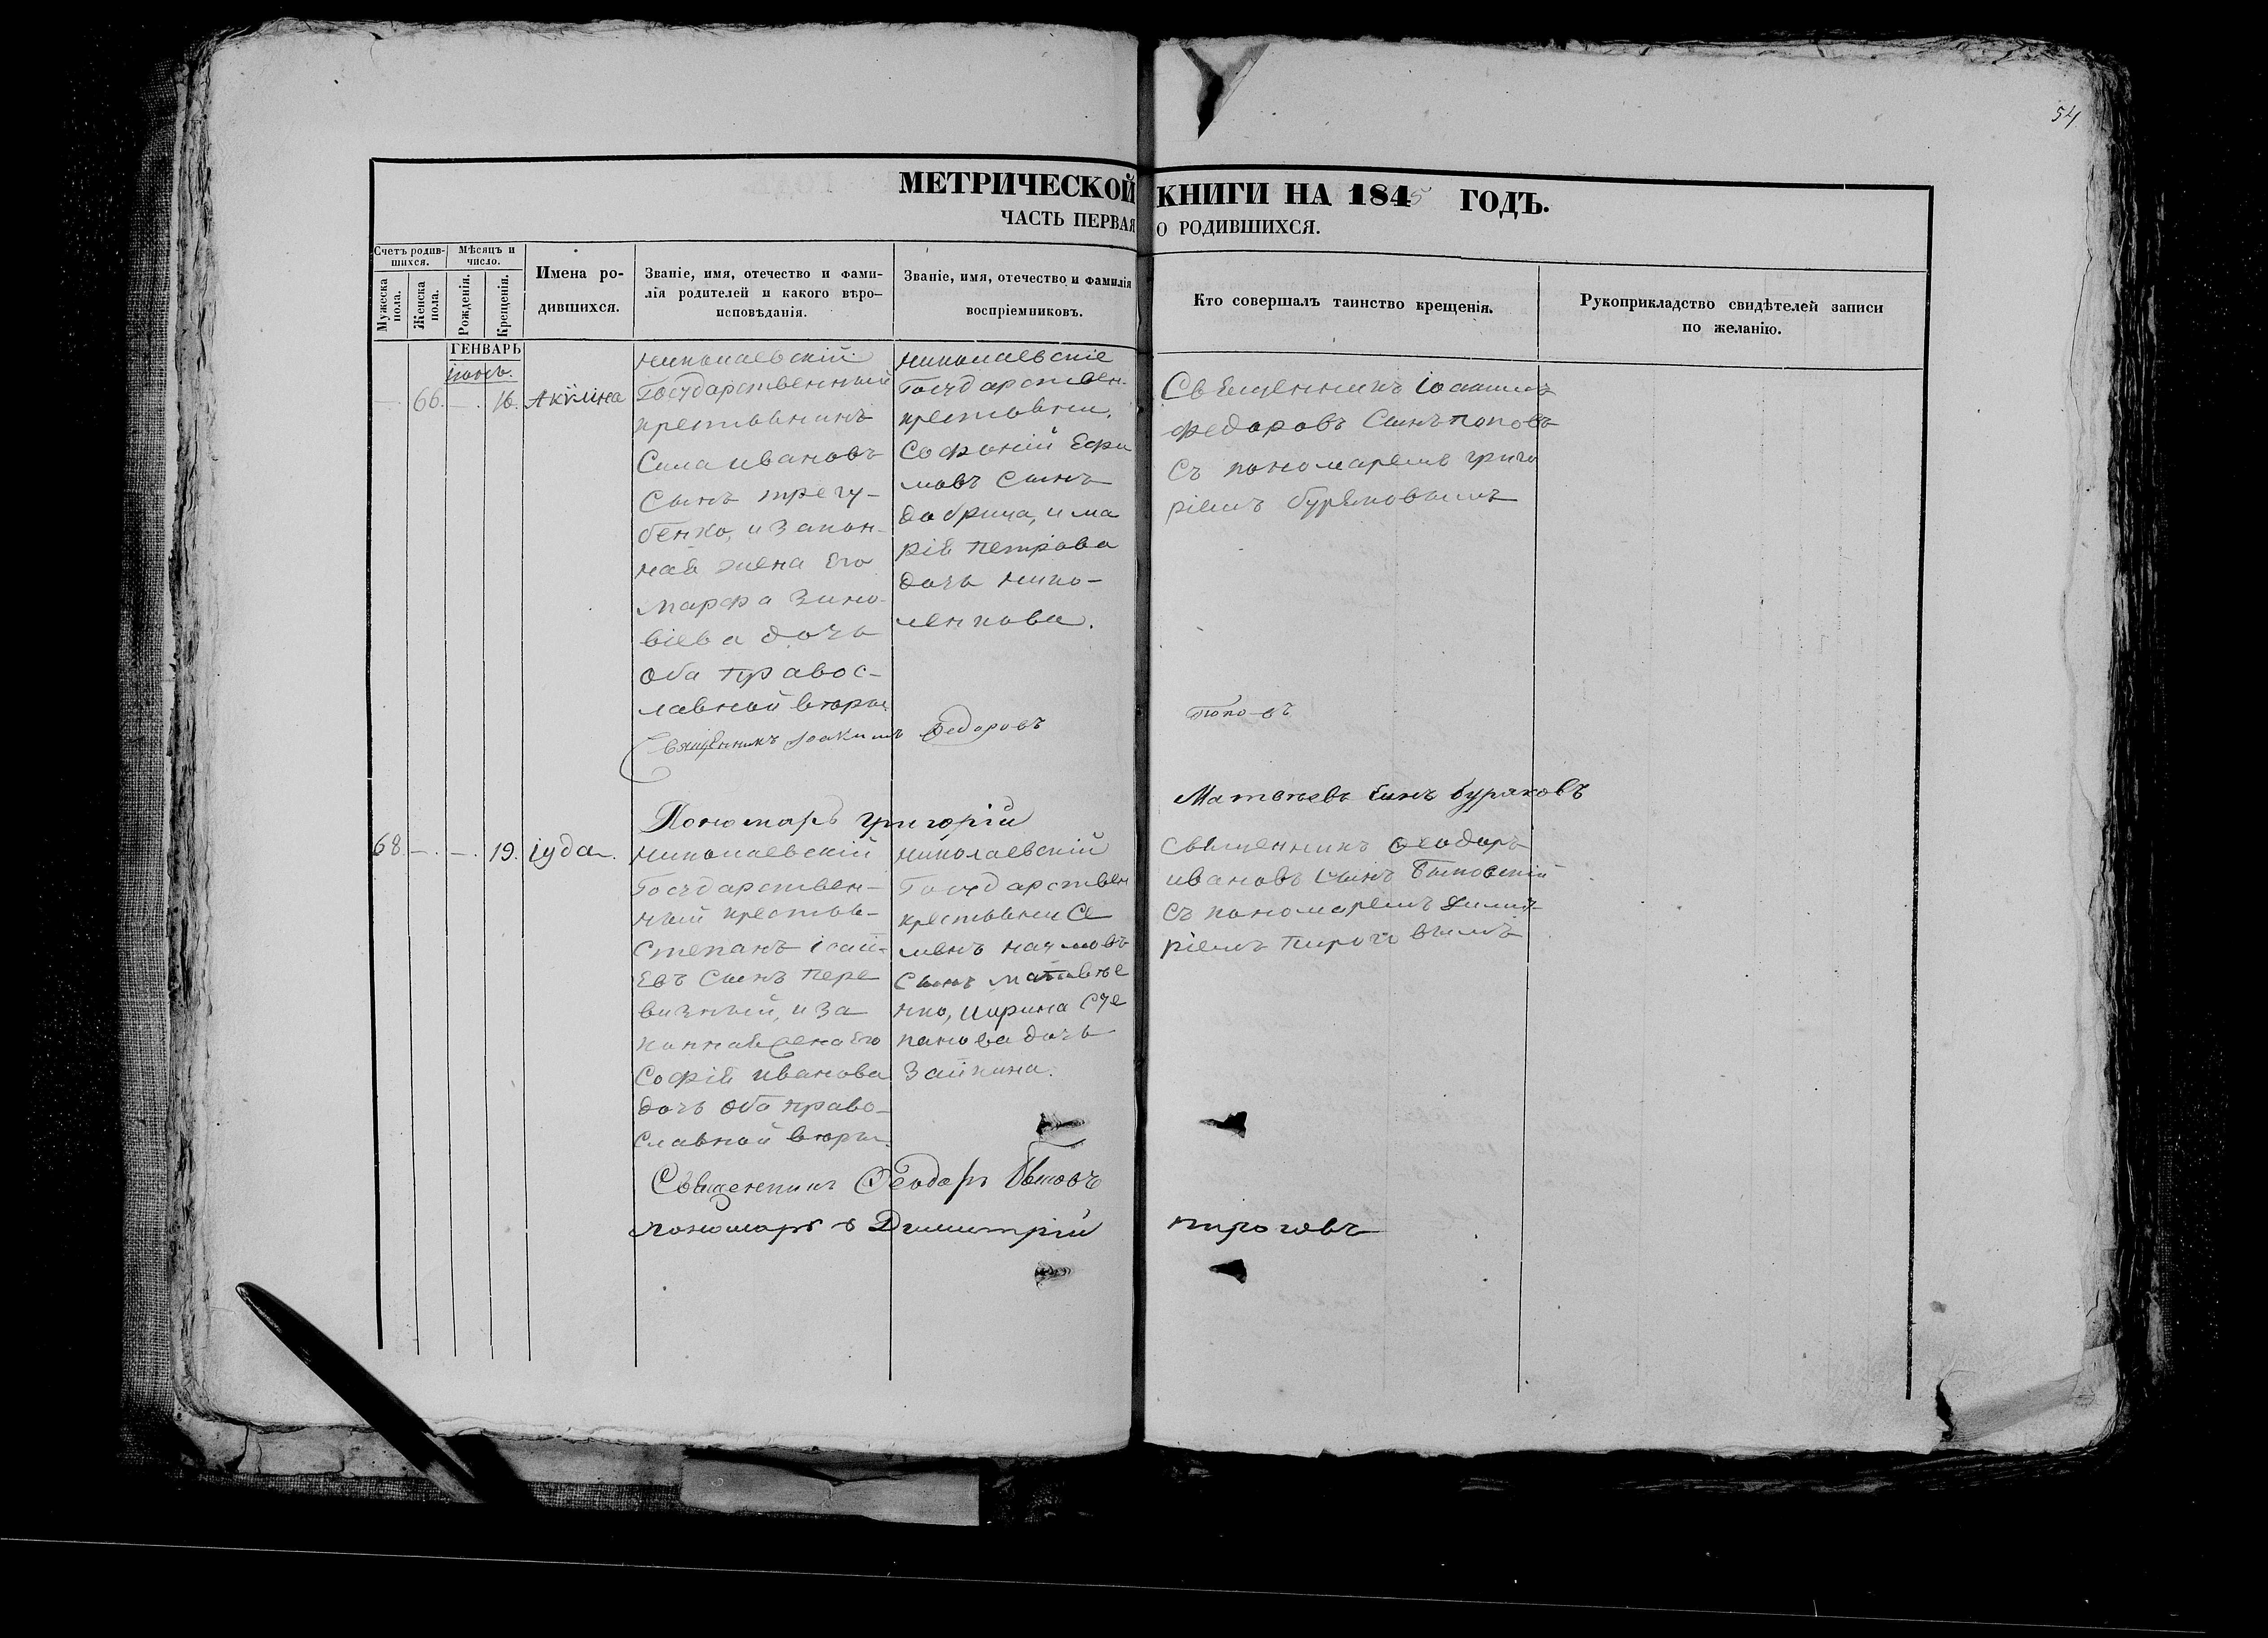 54
МЕТРИЧЕСКОЙ КНИГИ НА 1845 ГОДЪ.
ЧАСТЬ ПЕРВАЯ О РОДИВШИХСЯ.
Счетъ родив-
шихся.
Мужеска
пола.
Женска
пола.
Мѣсяцъ и
число.
Рожденія.
Крещенія.
Имена ро-
дившихся.
Званіе, имя, отечество и фами-
лія родителей и какого вѣро-
исповѣданія.
Званіе, имя, отечество и фамилія
воспріемниковъ.
Кто совершалъ таинство крещенія.
Рукоприкладство свидѣтелей записи
по желанію.
ГЕНВАРЬ
іюнь.
—. 66. —. 16. Акилина
николаевскій
Государственный
крестьянинъ
Сила ивановъ
Сынъ трегу-
бенко, и закон-
наѣ жена Его
марфа Зино-
віева дочь
Оба Правос-
лавной вѣры
николаевскіе
Государствен-
крестьяни.
Софоній Ефи
мовъ Сынъ
добрица, и ма
ріѣ Петрова
дочь нико-
ленкова.
Свѣщенникъ іоакимъ
федоровъ Сынъ Поповъ
Съ пономаремъ григо
ріемъ буряковымъ
Священникъ Іоакимъ Федоровъ Поповъ
Пономарь Григорій Матвѣевъ Сынъ буряковъ
68. —. —. 19. іуда.
николаевскій
Государствен-
ный крестья-
Степанъ ісай-
Евъ Сынъ Пере
визный, и за
коннаѣ жена Его
Софіѣ иванова
дочь Оба Право-
Славной вѣры
николаевскій
Государствен
крестьяни Се
менъ наумовъ
Сынъ матвѣе
нко, ирина Сте
панова дочь
Зайкина.
Свѣщенникъ Феодоръ
ивановъ Сынъ
Съ пономаремъ Димит-
ріемъ Пироговымъ
Священникъ Феодоръ
пономарь Димитрій пироговъ